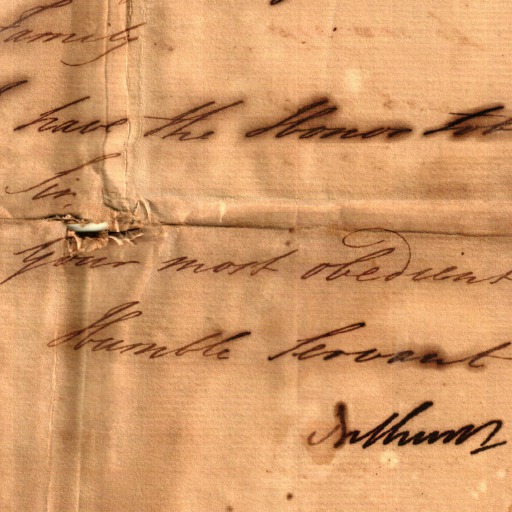 Family
I have the Honor to be
Sir
Your most obedient
Humble Servant